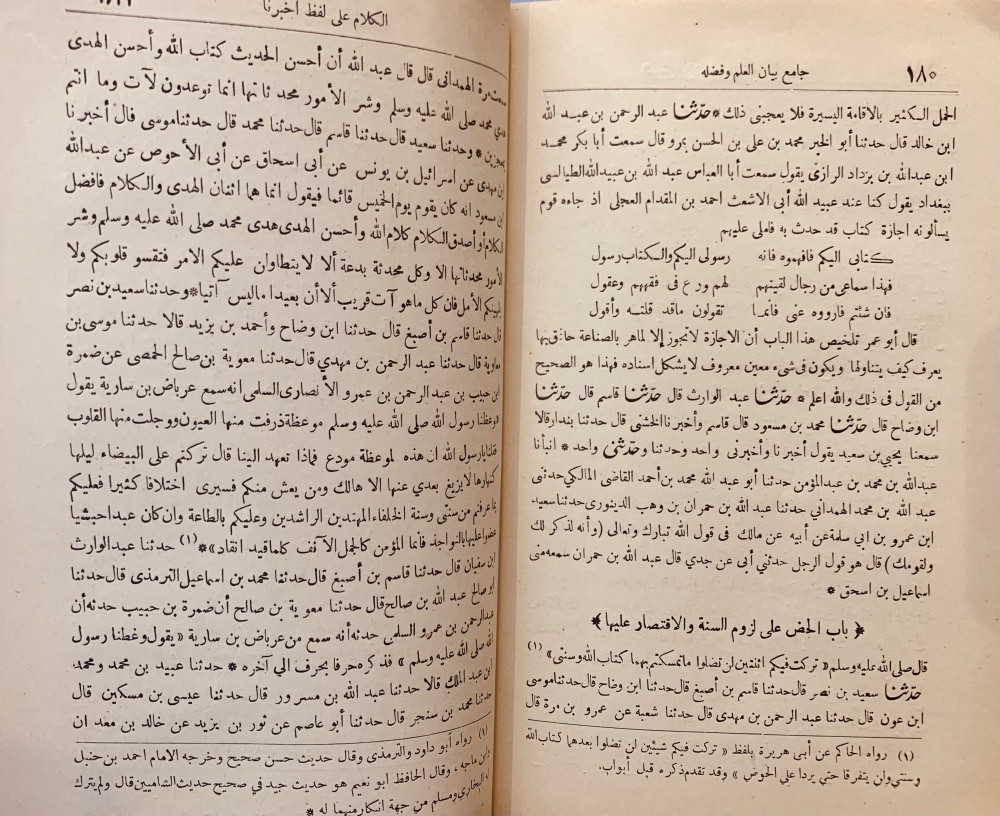 ١٨٠ جامع بيان العلم وفضله
الحمل الكثير بالاقامة اليسيرة فلا يعجبنى ذلك * حدّثنا عبد الرحمن بن عبد الله
ابن خالد قال حدثنا أبو الخير محمد بن على بن الحسن بمرو قال سمعت أبا بكر محمد
ابن عبدالله بن يزداد الرازى يقول سمعت أبا العباس عبد الله بن عبيدالله الطيالسى
ببغداد يقول كنا عند عبيد الله أبى الاشعث احمد بن المقدام العجلى اذ جاءه قوم
يسألونه اجازة كتاب قد حدث به فاملى عليهم
كتابى اليكم فافهموه فانه رسولى اليكم والكتاب رسول
فهذا سماعى من رجال لقيتهم لهم ورع فى فقههم وعقول
فان شئتم فارووه عنى فانما تقولون ماقد قلته وأقول
قال أبو عمر تلخيص هذا الباب أن الاجازة لاتجوز إلا لماهر بالصناعة حاذق بها
يعرف كيف يتناولها ويكون فى شىء معين معروف لايشكل اسناده فهذا هو الصحيح
من القول فى ذلك والله اعلم * حدّثنا عبد الوارث قال حدّثنا قاسم قال حدّثنا
ابن وضاح قال حدّثنا محمد بن مسعود قال قاسم وأخبرنا الخشنى قال حدثنا بندار قالا
سمعنا يحيى بن سعيد يقول أخبرنا وأخبرنى واحد وحدثنا وحدّثنى واحد * انبأنا
عبدالله بن محمد بن عبدالمؤمن حدثنا أبو عبد الله محمد بن أحمد القاضى المالكي حدثنى
عبد الله بن محمد الهمداني حدثنا عبد الله بن حمران بن وهب الدينورى حدثنا سعيد
ابن عمرو بن ابي سلمة عن أبيه عن مالك فى قول الله تبارك وتعالى (وأنه لذكر لك
ولقومك) قال هو قول الرجل حدثني أبى عن جدي قال عبد الله بن حمران سمعه منى
اسماعيل بن اسحق *
﴿ باب الحض على لزوم السنة والاقتصار عليها ﴾
قال صلى الله عليه وسلم « تركت فيكم اثنتين لن تضلوا ماتمسكتم بهما كتاب الله وسنتى » (١)
حدّثنا سعيد بن نصر قال حدثنا قاسم بن أصبغ قال حدثنا ابن وضاح قال حدثنا موسى
ابن عون قال حدثنا عبد الرحمن بن مهدى قال حدثنا شعبة عن عمرو بن مرة قال
(١) رواه الحاكم عن أبى هريرة بلفظ « تركت فيكم شيئين لن تضلوا بعدهما كتاب الله
وسنتي ولن يتفرقا حتى يردا على الحوض » وقد تقدم ذكره قبل أبواب.
الكلام على لفظ اخبرنا
مرة الهمدانى قال قال عبد الله أن أحسن الحديث كتاب الله وأحسن الهدى
هدي محمد صلى الله عليه وسلم وشر الأمور محدثاتها انما توعدون لآت وما انتم
بمعجزين * وحدثنا سعيد قال حدثنا قاسم قال حدثنا محمد قال حدثنا موسى قال أخبرنا
ابن مهدى عن اسرائيل بن يونس عن أبى اسحاق عن أبى الأحوص عن عبدالله
بن مسعود انه كان يقوم يوم الخميس قائما فيقول انما هما اثنان الهدى والكلام فافضل
الكلام أو أصدق الكلام كلام الله وأحسن الهدى هدى محمد صلى الله عليه وسلم وشر
الأمور محدثاتها الا وكل محدثة بدعة ألا لا يتطاولن عليكم الامر فتقسو قلوبكم ولا
يلهينكم الأمل فان كل ماهو آت قريب ألا أن بعيدا ماليس آتيا * وحدثنا سعيد بن نصر
قال حدثنا قاسم بن أصبغ قال حدثنا ابن وضاح وأحمد بن يزيد قالا حدثنا موسى بن
معاوية قال حدثنا عبد الرحمن بن مهدي قال حدثنا معوية بن صالح الحمصى عن ضمرة
ابن حبيب بن عبد الرحمن بن عمرو الأنصارى السلمى انه سمع عرباض بن سارية يقول
وعظنا رسول الله صلى الله عليه وسلم موعظة ذرفت منها العيون ووجلت منها القلوب
فقلنا يارسول الله ان هذه لموعظة مودع فماذا تعهد الينا قال تركتم على البيضاء ليلها
كنهارها لا يزيغ بعدي عنها الا هالك ومن يعش منكم فسيرى اختلافا كثيرا فعليكم
بما عرفتم من سنتى وسنة الخلفاء المهتدين الراشدين وعليكم بالطاعة وان كان عبداحبشيا
عضوا عليها بالنواجذ فانما المؤمن كالجمل الآنف كلما قيد انقاد » * (١) حدثنا عبد الوارث
ابن سفيان قال حدثنا قاسم بن أصبغ قال حدثنا محمد بن اسماعيل الترمذى قال حدثنا
ابو صالح عبد الله بن صالح قال حدثنا معوية بن صالح أن ضمرة بن حبيب حدثه أن
عبد الرحمن بن عمرو السلمى حدثه أنه سمع من عرباض بن سارية « يقول وعظنا رسول
الله صلى الله عليه وسلم » فذكره حرفا بحرف الى آخره * حدثنا عبيد بن محمد ومحمد
ابن عبد الملك قالا حدثنا عبد الله بن مسرور قال حدثنا عيسى بن مسكين قال
حدثنا محمد بن سنجر قال حدثنا أبو عاصم عن ثور بن يزيد عن خالد بن معدان
(١) رواه أبو داود والترمذى وقال حديث حسن صحيح وخرجه الامام احمد بن حنبل
وابن ماجه ، وقال الحافظ ابو نعيم هو حديث جيد في صحيح حديث الشاميين قال ولم يترك
له البخاري ومسلم من جهة انكار منهما له *